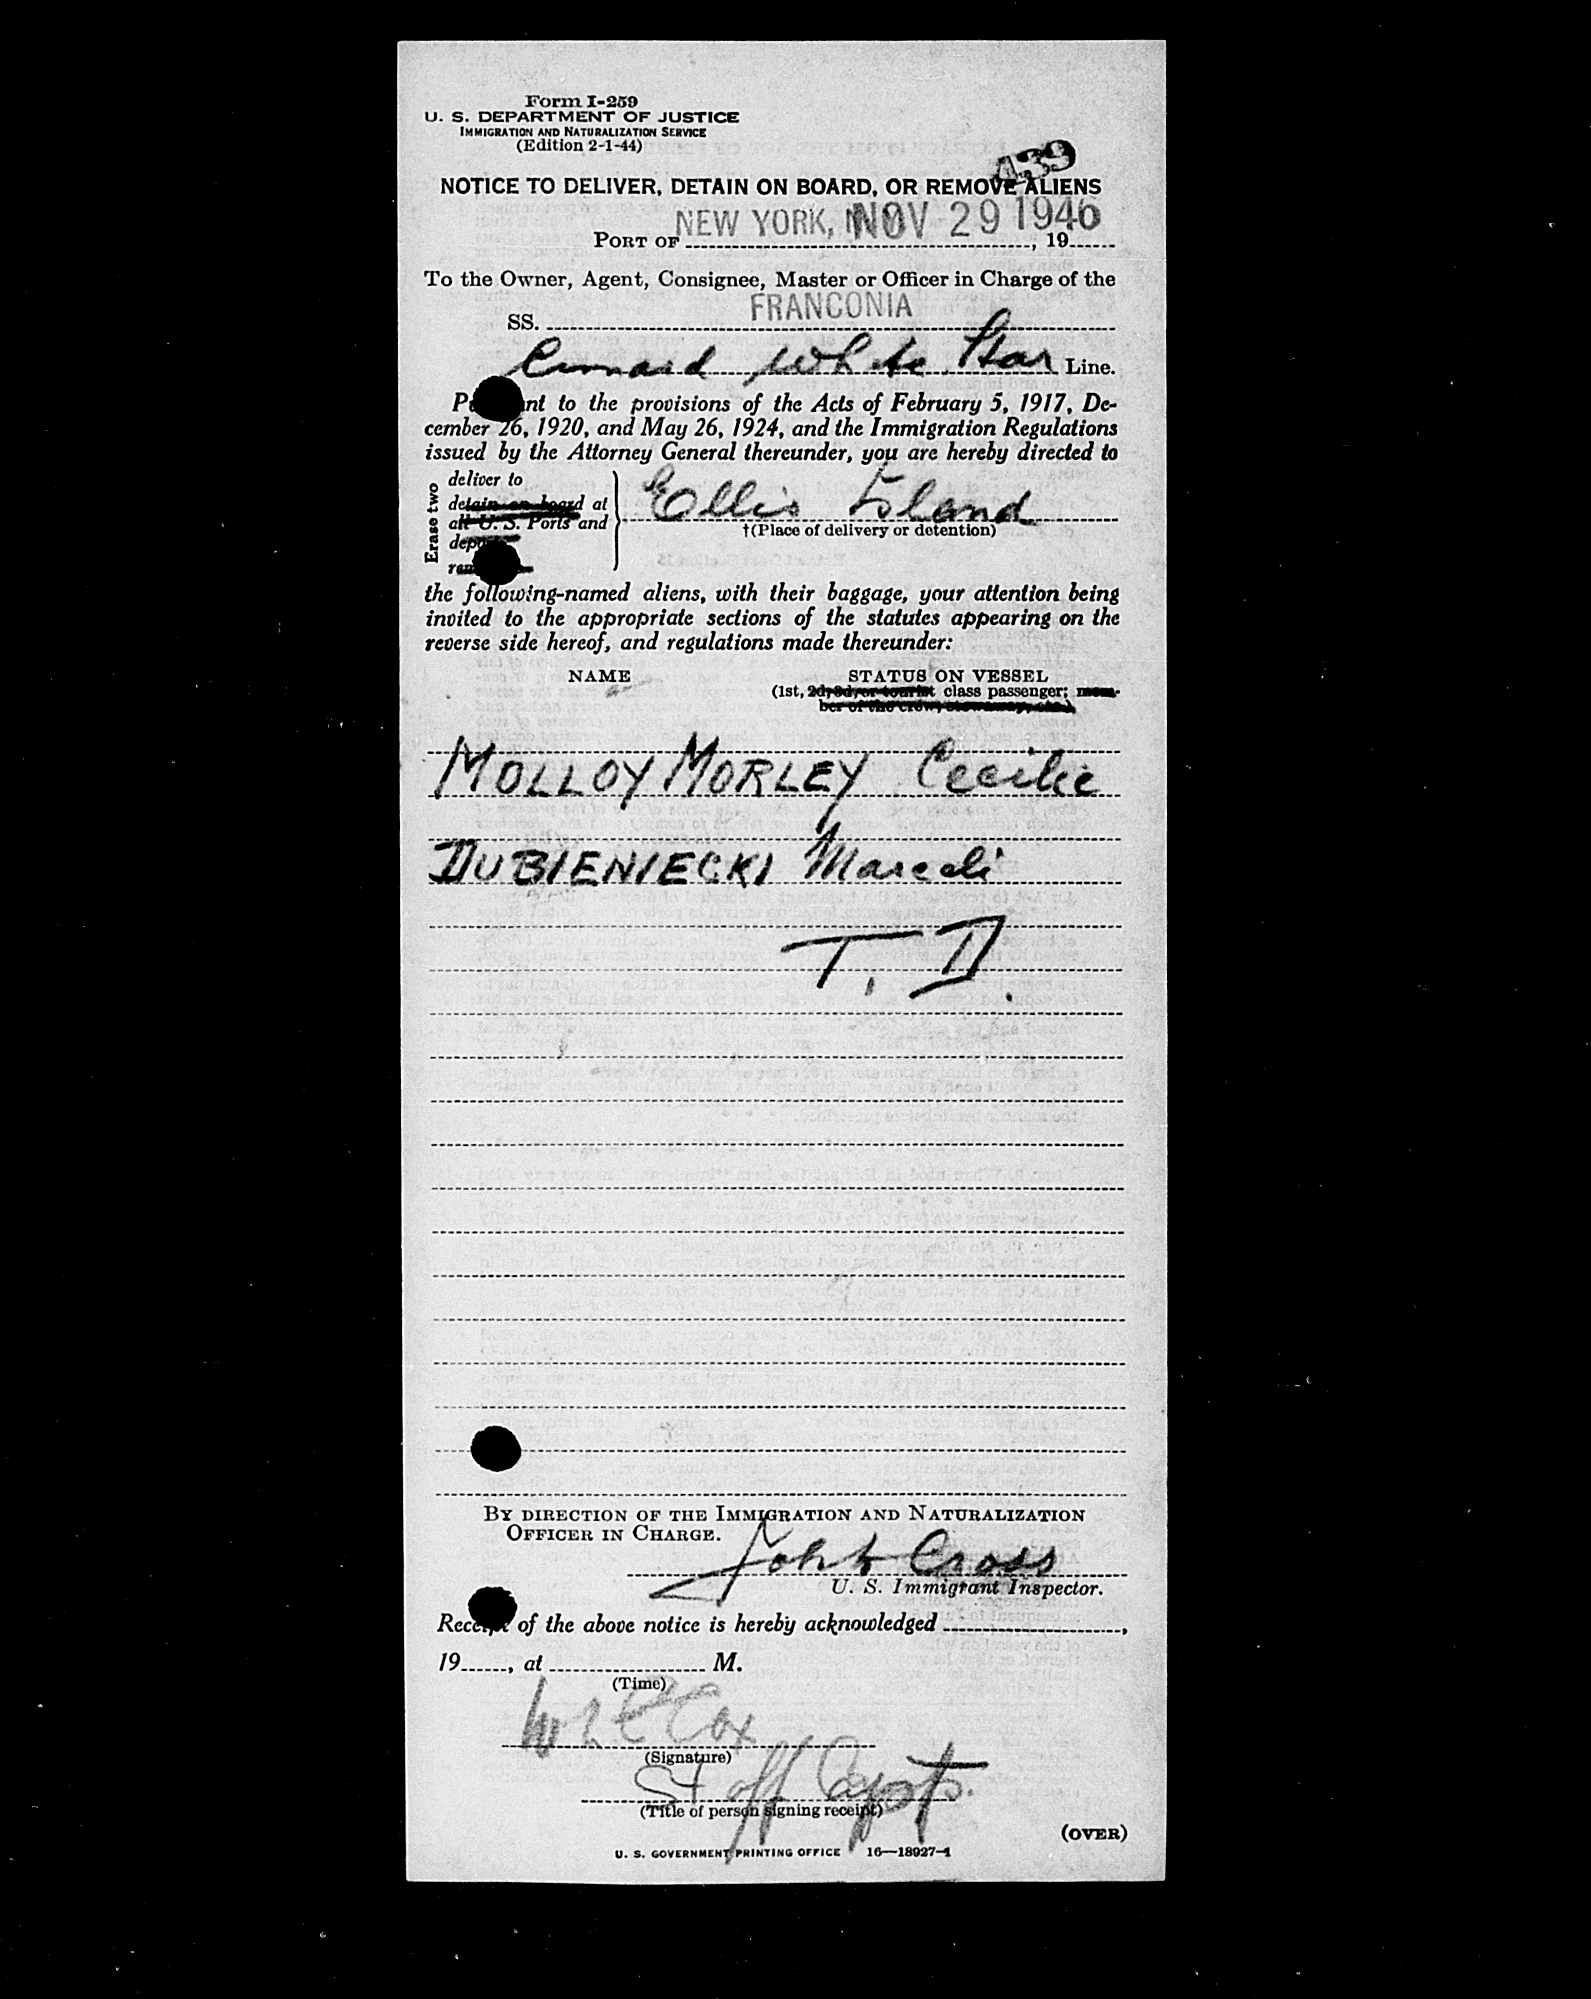 Form I-259
U. S. DEPARTMENT OF JUSTICE
IMMIGRATION AND NATURALIZATION SERVICE
(Edition 2-1-44)
439
NOTICE TO DELIVER, DETAIN ON BOARD, OR REMOVE ALIENS
PORT OF NEW YORK, NOV 29 1946, 19
To the Owner, Agent, Consignee, Master or Officer in Charge of the
SS. FRANCONIA
Cunard White Star Line.
Pursuant to the provisions of the Acts of February 5, 1917, De-
cember 26, 1920, and May 26, 1924, and the Immigration Regulations
issued by the Attorney General thereunder, you are hereby directed to
Erase two
deliver to
detain on board at
all U. S. Ports and
Ellis Island
†(Place of delivery or detention)
the following-named aliens, with their baggage, your attention being
invited to the appropriate sections of the statutes appearing on the
reverse side hereof, and regulations made thereunder:
NAME STATUS ON VESSEL
(1st, 2d, 3d, or tourist class passenger; mem-
ber of the crew, stowaway, etc.)
MOLLOY MORLEY Cecilie
DUBIENIECKI Marceli
T. D.
BY DIRECTION OF THE IMMIGRATION AND NATURALIZATION
OFFICER IN CHARGE.
John Cross
U. S. Immigrant Inspector.
Receipt of the above notice is hereby acknowledged ,
19 , at M.
(Time)
Cox
(Signature)
Staff Capt.
(Title of person signing receipt)
(OVER)
U. S. GOVERNMENT PRINTING OFFICE 16—18927-1